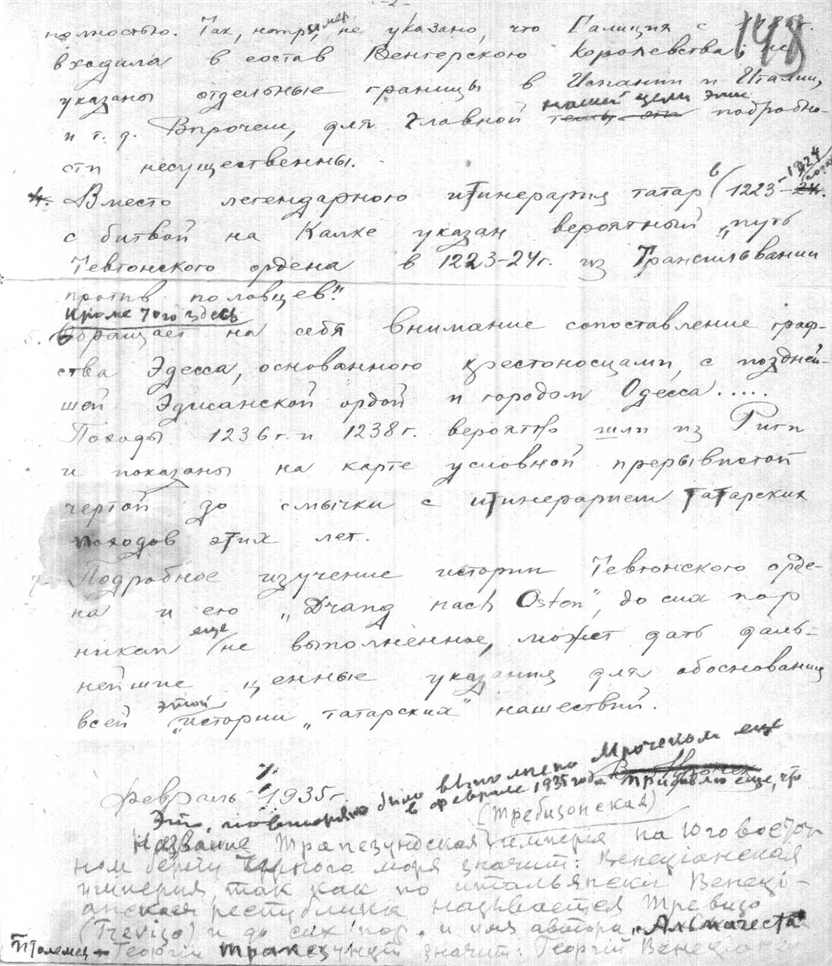 -2-
148
полностью. Так, напр., не указано, что Галиция с
входила в состав Венгерского Королевства, не
указаны отдельные границы в Испании и Италии,
нашей цели эти
и т. д. Впрочем, для главной подробно-
сти несущественны.
4. Вместо легендарного итинерария татар в (1223-1224
с битвой на Калке указан вероятный „путь
Тевтонского ордена в 1223-24г. из Трансильвании
против половцев".
Кроме того здесь
5. обращает на себя внимание сопоставление граф-
ства Эдесса, основанного крестоносцами, с поздней-
шей Эдисанской ордой и городом Одесса.....
Походы 1236г. и 1238г. вероятно шли из Риги
и показаны на карте условной прерывистой
чертой до смычки с итинерарием татарских
походов этих лет.
Подробное изучение истории Тевтонского орде-
на и его „Drang nach Osten", до сих пор
еще
никем не выполненное, может дать даль-
нейшие ценные указания для обоснования
этой
всей „истории „татарских" нашествий.
Февраль 1935г.
Это, повторяю было выполнено Мрочеком еще
в феврале 1935 года прибавлю еще, что
(Требизонская)
Название Трапезундская империя на Юговосточ-
ном берегу Чорного моря значит: Венеціанская
империя так как по итальянски Венеці-
анская республика называется Тревизо
(Trevizo) и до сих пор. и имя автора „Альмагеста"
Птолемея - Георгій Трапезунтй значит: Георгій Венеціанс